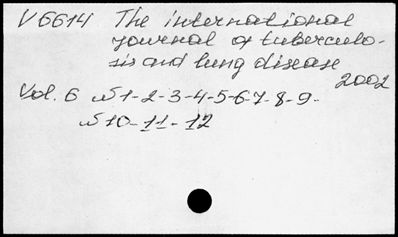 V6614 The international
journal of tuberculo-
sis and lung disease
2002
Vol. 6 N 1-2-3-4-5-6-7-8-9-
N 10-11-12